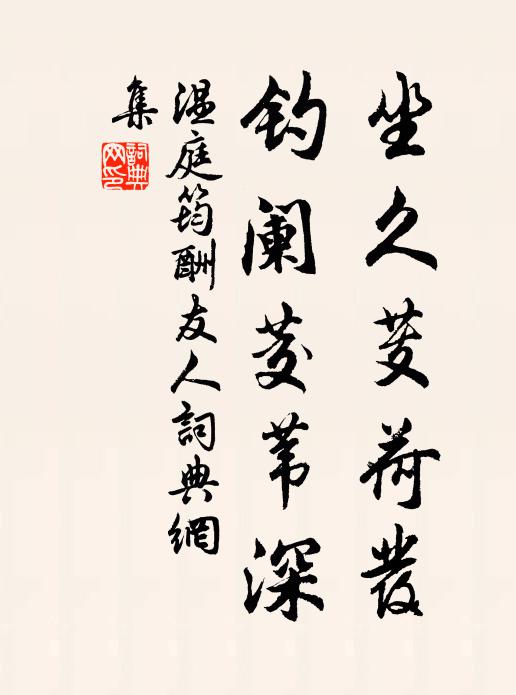 坐久芰荷發
钓阑茭苇深
温庭筠酬友人詞典網
集
詞典
网印